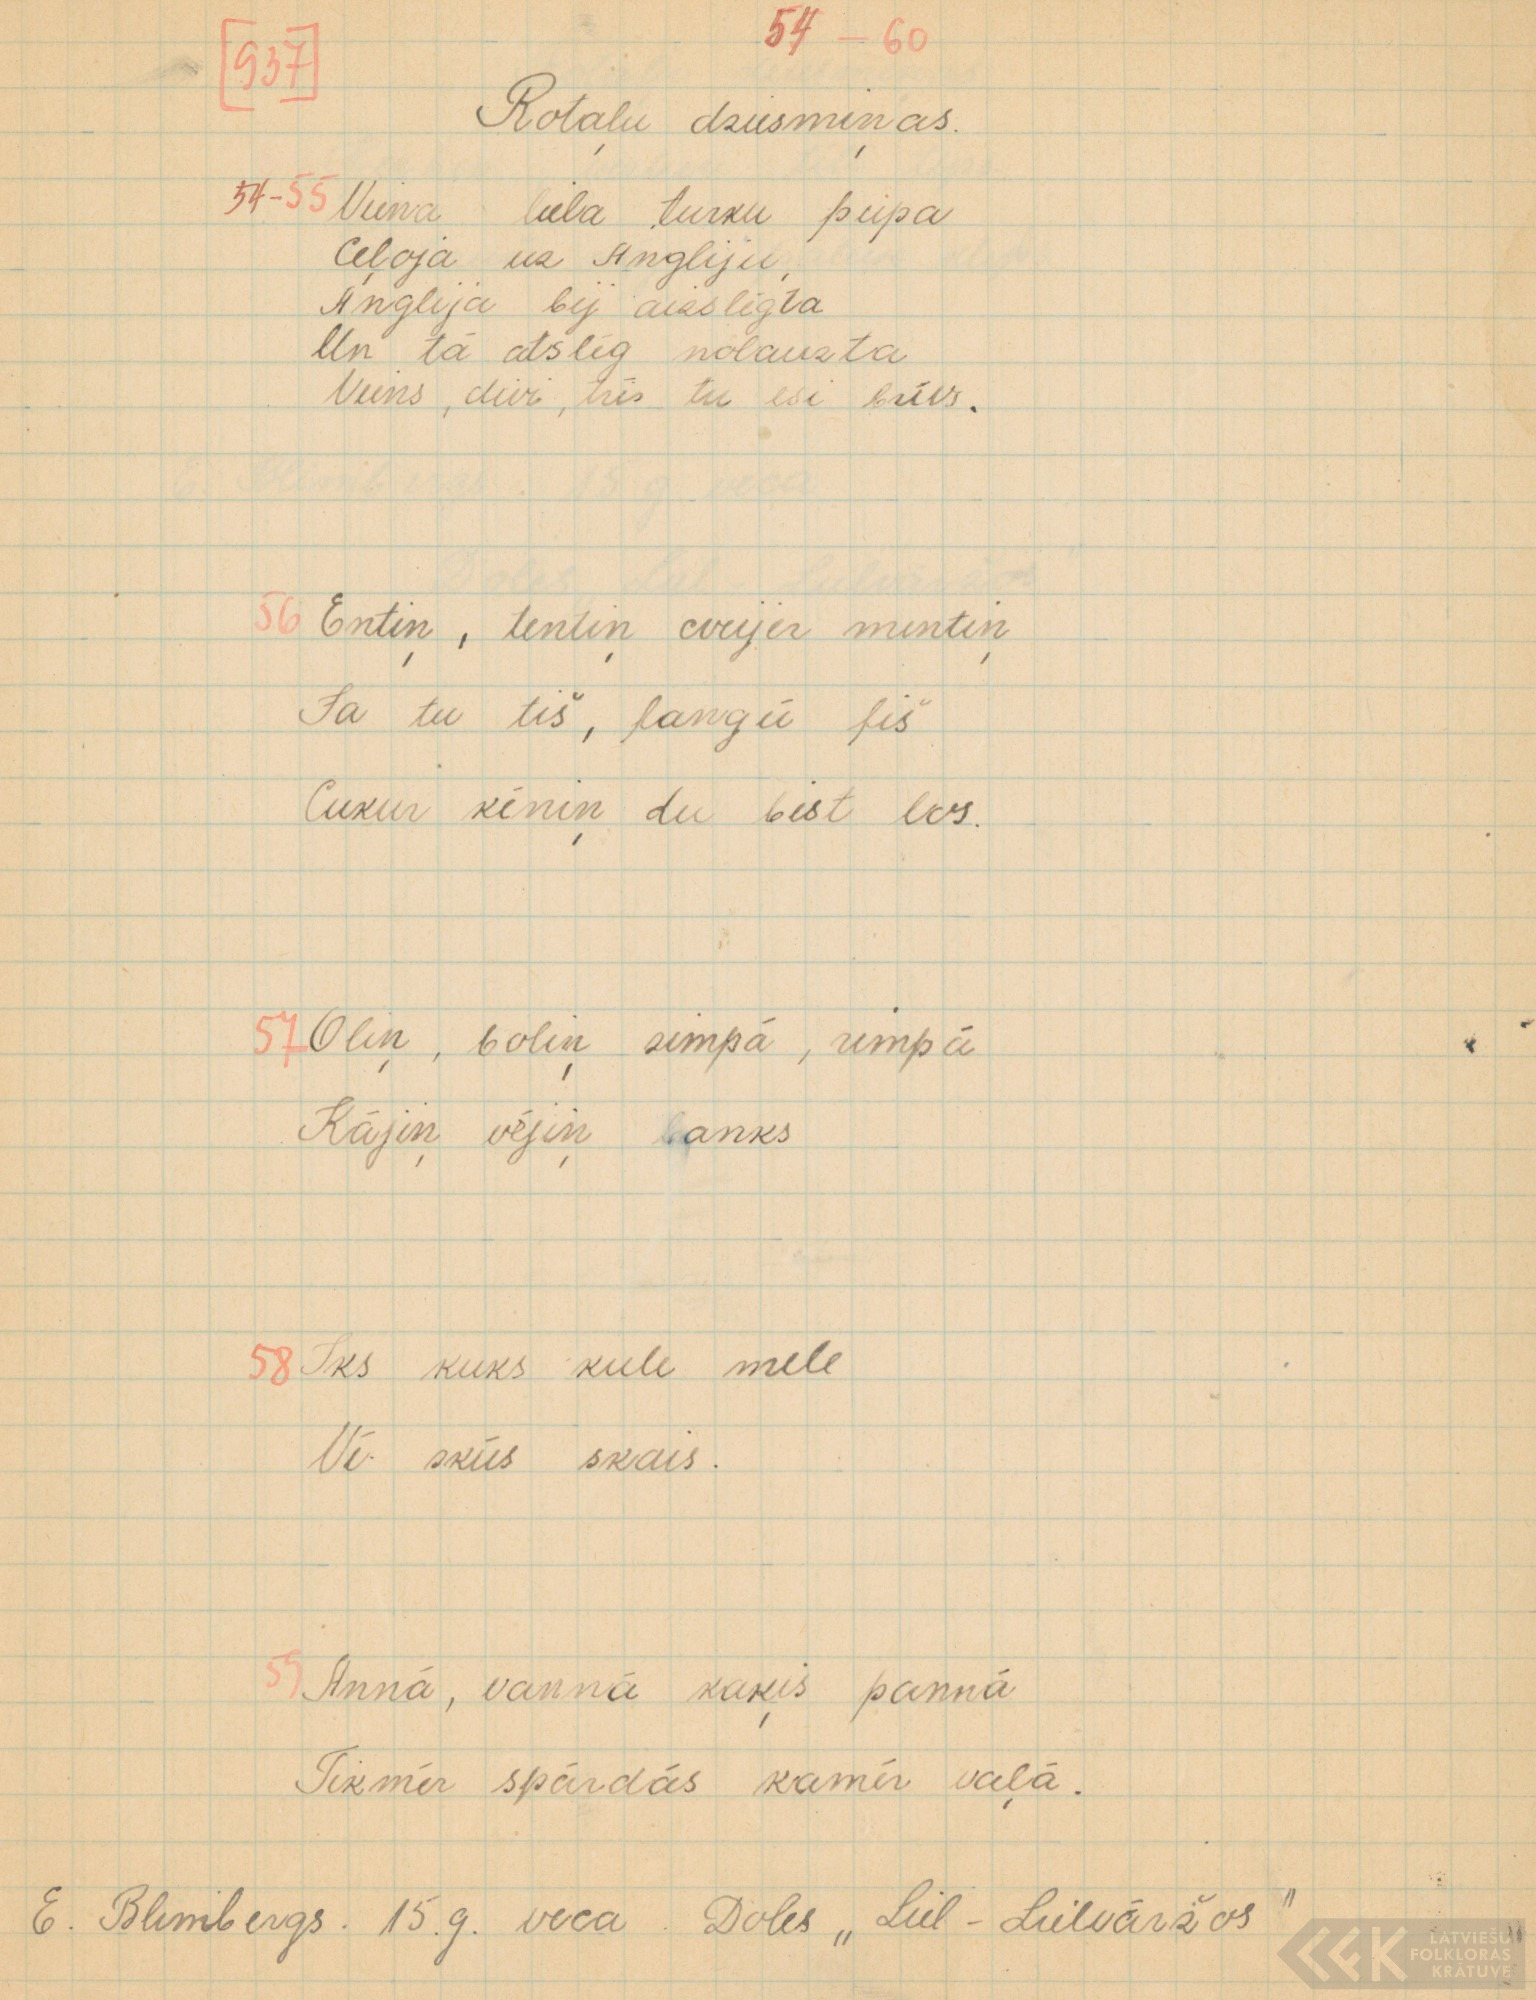 54 - 60
[937]
Rotaļu dziesmiņas.
54-55 Viena liela turku pīpa
Ceļoja uz Angliju,
Anglija bij aizslēgta
Un tā atslēg nolauzta
Viens, divi, trīs tu esi brīvs.
56 Entiņ, tentiņ cveijer mentiņ
Sa tu tiš, fangē fiš
Cukur kēniņ du bist los.
57 Oliņ, boliņ zimpā, rimpā
Kājiņ vējiņ banks
58 Iks kuks kule mele
Vē skūs skais.
59 Annā, vannā kaķis pannā
Tikmēr spārdās kamēr vaļā.
E. Blumbergs. 15.g. veca. Doles „Liel-Lielvāržos"
LATVIEŠU
FOLKLORAS
KRĀTUVE